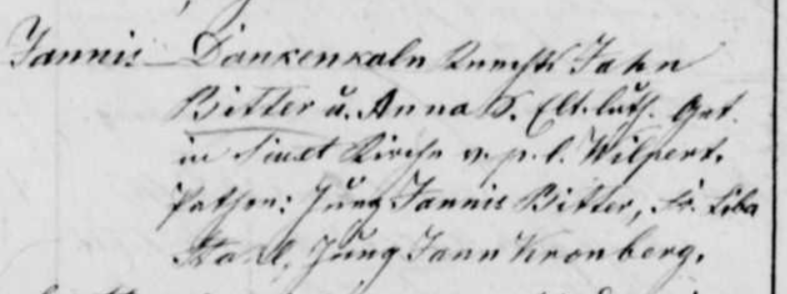 Jannis Dankenkaln Knechts Jahn
Bitter u. Anna S. Elt. luth. Get.
in Kirche v. p. l. Wilpert.
Pathen: Jung Jannis Bitter, Fr. Liba
Jung Jann Kronberg.